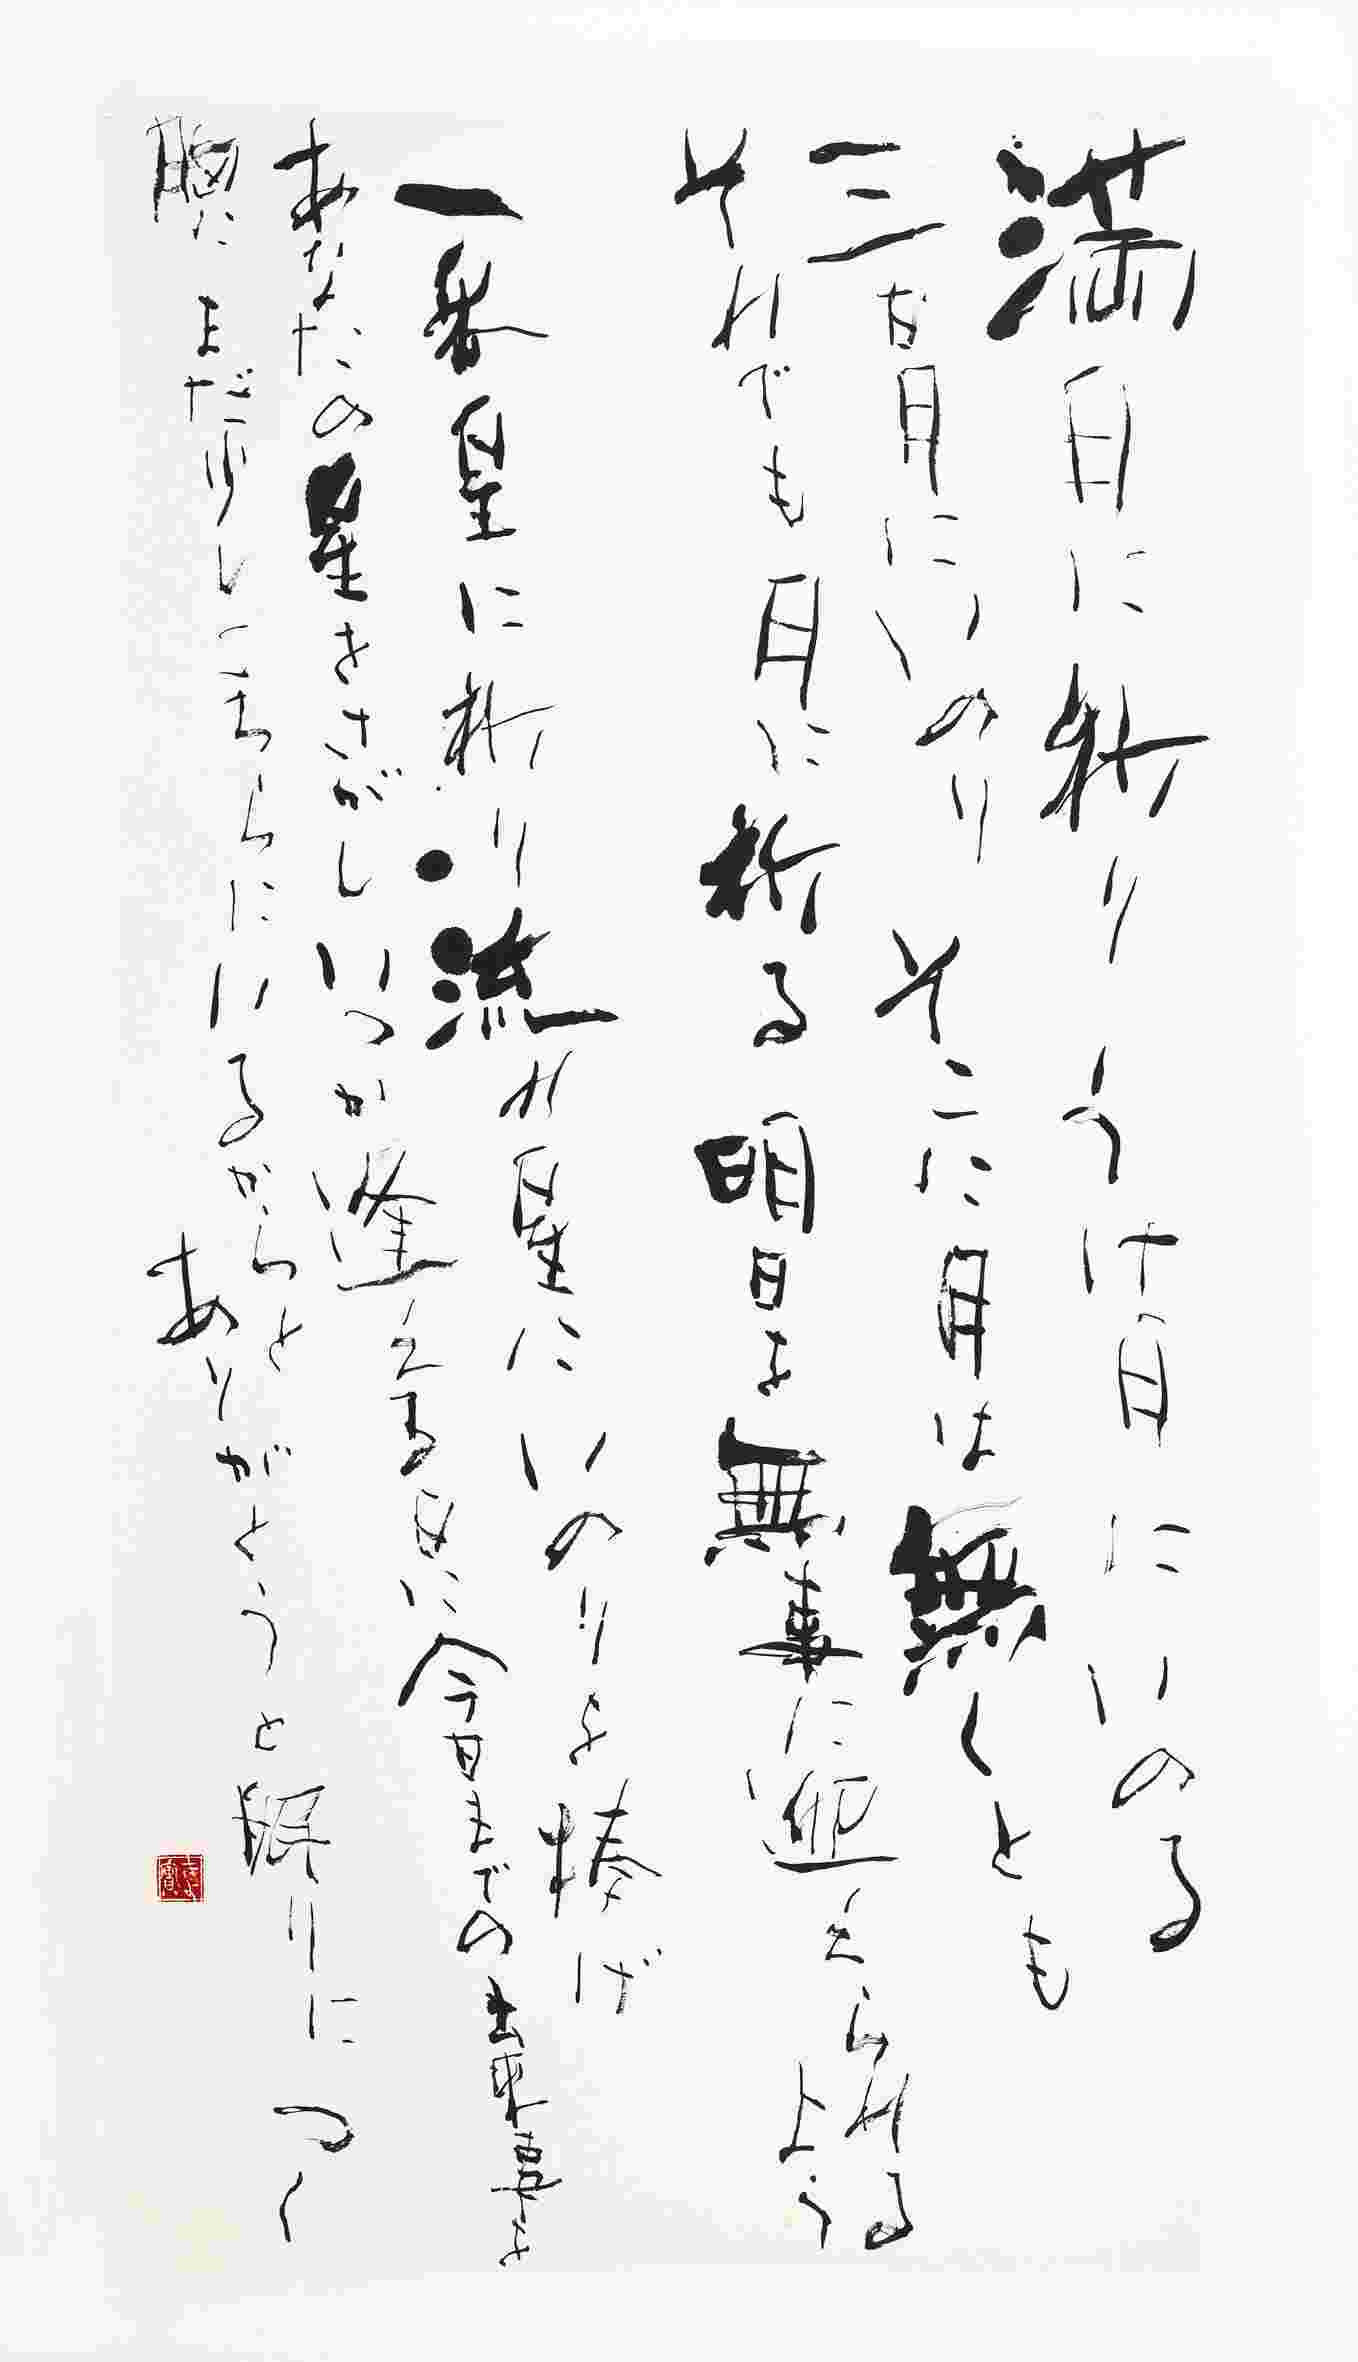 満月に祈り うけ月にいのる
三ヵ月にいのり そこに月は無くとも
それでも月に祈る 明日を無事に迎えられるよう
一番星に祈り 流れ星にいのりを捧げ
あなたの星をさがし いつか逢える日に今日までの出来事を
胸に まだ少しこちらにいるからと
ありがとうと眠りにつく